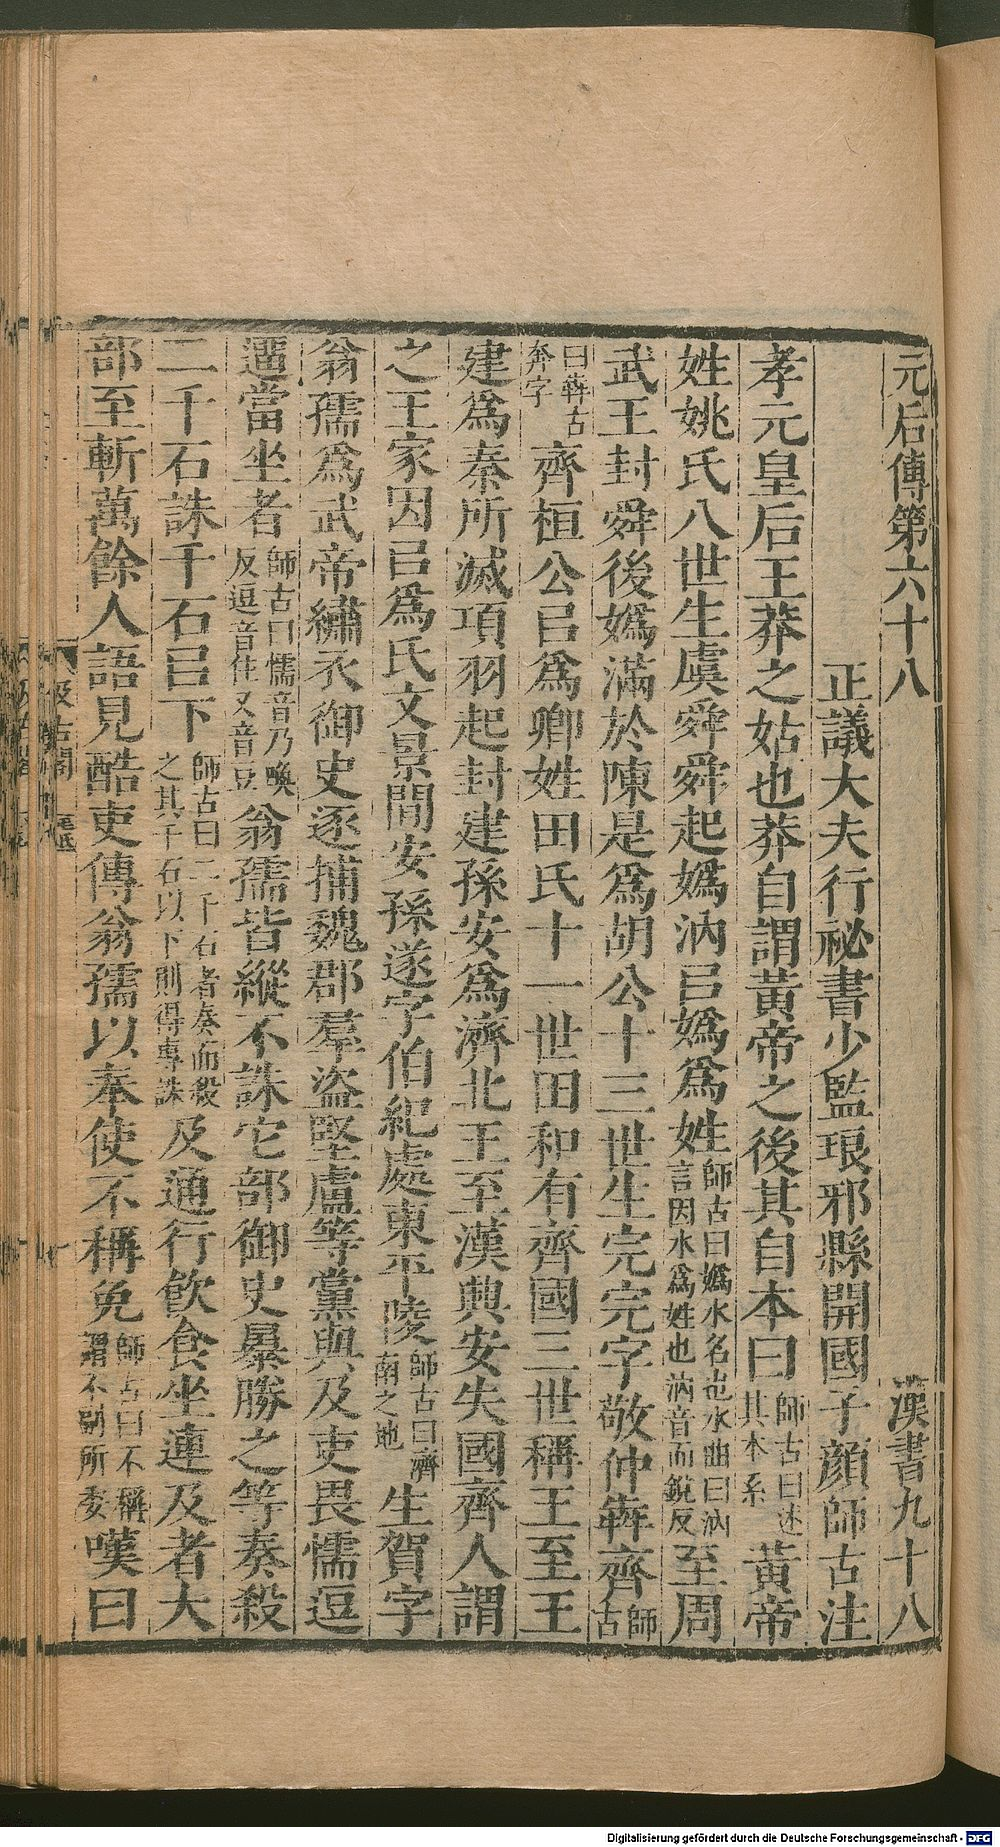 元后傳第六十八　漢書九十八
正議大夫行祕書少監琅邪縣開國子顏師古注
孝元皇后王莽之姑也莽自謂黃帝之後其自本曰師古曰述其本系黃帝
姓姚氏八世生虞舜舜起嬀汭㠯嬀爲姓師古曰嬀水名也水曲曰汭言因水爲姓也汭音而銳反至周
武王封舜後嬀滿於陳是爲胡公十三世生完完字敬仲犇齊師古
曰犇古奔字齊桓公㠯爲卿姓田氏十一世田和有齊國三世稱王至王
建爲秦所滅項羽起封建孫安爲濟北王至漢興安失國齊人謂
之王家因㠯爲氏文景間安孫遂字伯紀處東平陵師古曰濟南之地生賀字
翁孺爲武帝繡衣御史逐捕魏郡羣盜堅盧等黨與及吏畏懦逗
遛當坐者師古曰懦音乃喚反逗音住又音豆翁孺皆縱不誅它部御史暴勝之等奏殺
二千石誅千石㠯下師古曰二千石者奏而殺之其千石以下則得專誅及通行飮食坐連及者大
部至斬萬餘人語見酷吏傳翁孺以奉使不稱免師古曰不稱謂不副所委嘆曰
汲古閣
Digitalisierung gefördert durch die Deutsche Forschungsgemeinschaft - DFG